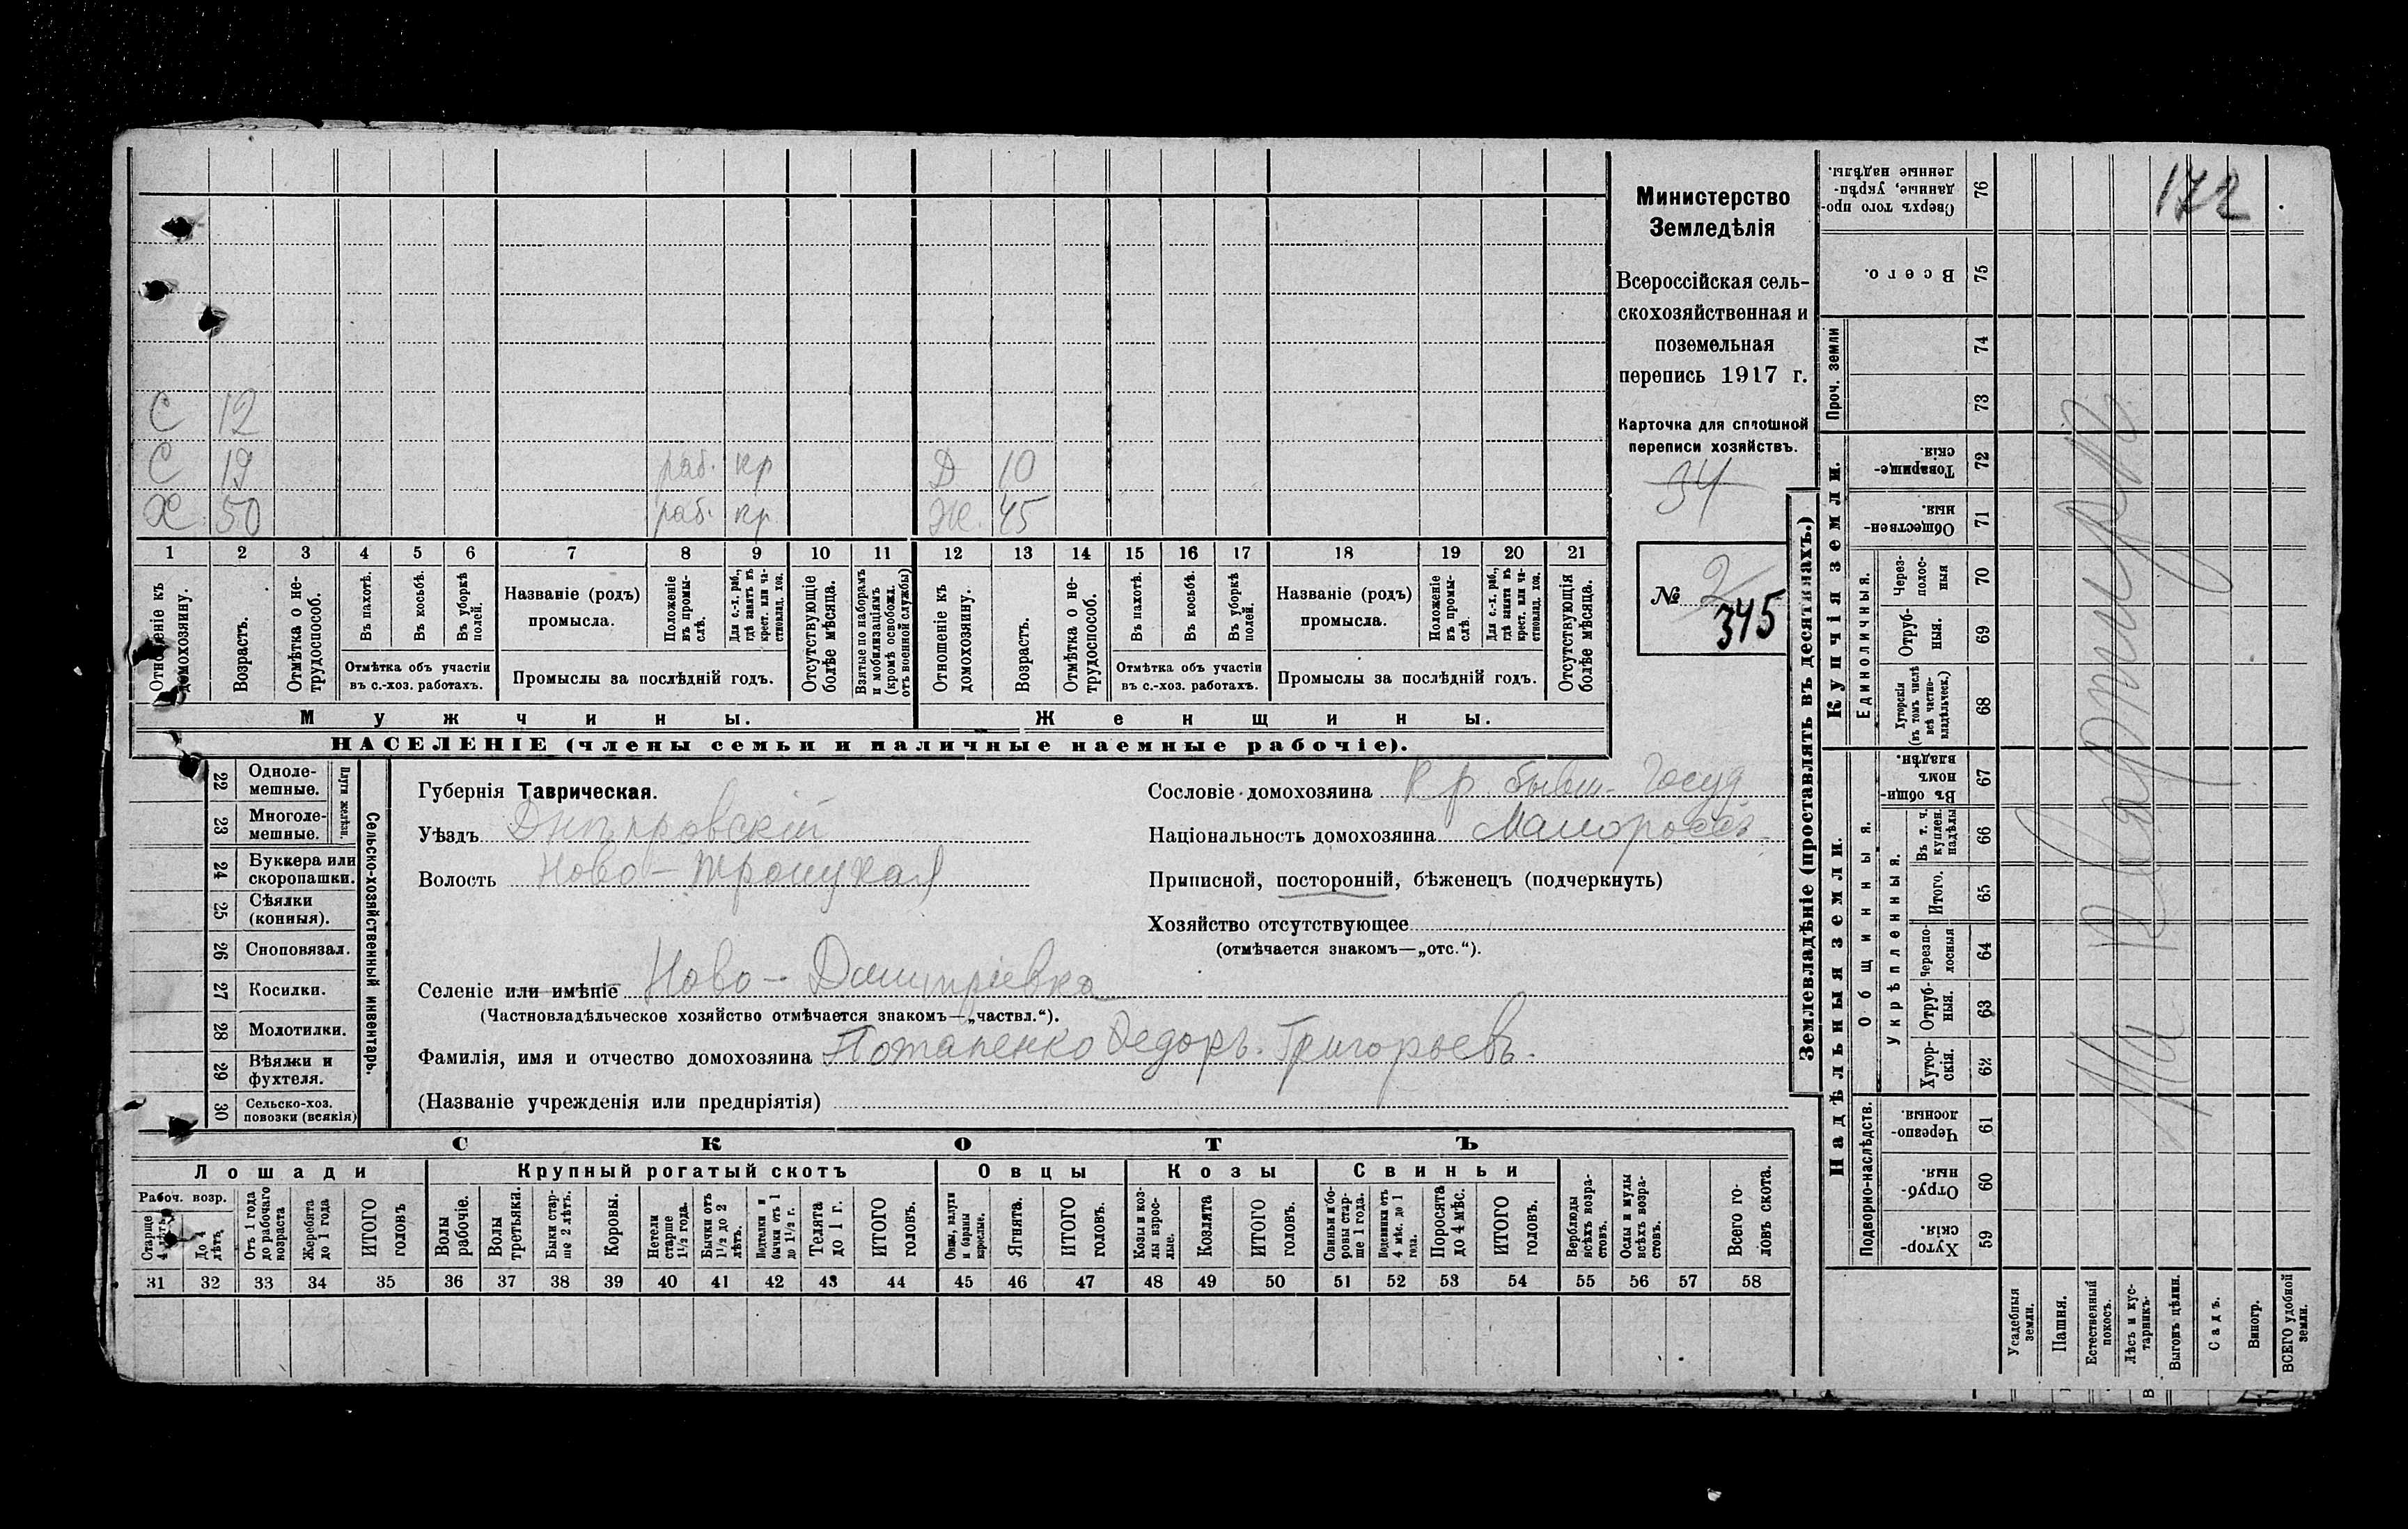 172
Министерство
Земледѣлія
Всероссійская сель-
скохозяйственная и
поземельная
перепись 1917 г.
Карточка для сплошной
переписи хозяйствъ.
34
№ 2
345
С 12
С 19 раб. кр Д 10
Х. 50 раб. кр Ж. 45
1 2 3 4 5 6 7 8 9 10 11 12 13 14 15 16 17 18 19 20 21
Отношеніе къ домохозяину.
Возрастъ.
Отмѣтка о не-
трудоспособ.
Въ пахотѣ.
Въ косьбѣ.
Въ уборкѣ
полей.
Отмѣтка объ участіи
въ с.-хоз. работахъ.
Названіе (родъ)
промысла.
Положеніе
въ промы-
слѣ.
Для с.-х. раб.,
гдѣ занятъ въ
крест. или ча-
стновлад. хоз.
Промыслы за послѣдній годъ.
Отсутствующіе
болѣе мѣсяца.
Взятые по наборамъ
и мобилизаціямъ
(кромѣ освобожд.
отъ военной службы)
Отношеніе къ
домохозяину.
Возрастъ.
Отмѣтка о не-
трудоспособ.
Въ пахотѣ.
Въ косьбѣ.
Въ уборкѣ
полей.
Отмѣтка объ участіи
въ с.-хоз. работахъ.
Названіе (родъ)
промысла.
Положеніе
въ промы-
слѣ.
Для с.-х. раб.,
гдѣ занята въ
крест. или ча-
стновлад. хоз.
Промыслы за послѣдній годъ.
Отсутствующія
болѣе мѣсяца.
Мужчины. Женщины.
НАСЕЛЕНІЕ (члены семьи и наличные наемные рабочіе).
22 Одноле-
мешные.
23 Многоле-
мешные.
Плуги желѣзн.
24 Буккера или
скоропашки.
25 Сѣялки
(конныя).
26 Сноповязал.
27 Косилки.
28 Молотилки.
29 Вѣялки и
фухтеля.
30 Сельско-хоз.
повозки (всякія)
Сельско-хозяйственный инвентарь.
Губернія Таврическая.
Уѣздъ Днѣпровскій
Волость Ново-Троицкая
Селеніе или имѣніе Ново-Дмитріевка
(Частновладѣльческое хозяйство отмѣчается знакомъ—„частвл.“).
Фамилія, имя и отчество домохозяина Потапенко Федоръ Григорьевъ.
(Названіе учрежденія или предпріятія)
Сословіе домохозяина Кр. бывш. Госуд
Національность домохозяина Малороссъ
Приписной, посторонній, бѣженецъ (подчеркнуть)
Хозяйство отсутствующее
(отмѣчается знакомъ—„отс.“).
СКОТЪ
Лошади Крупный рогатый скотъ Овцы Козы Свиньи
Рабоч. возр.
Старше
4 лѣтъ
До 4
лѣтъ
Отъ 1 года
до рабочаго
возраста
Жеребята
до 1 года
ИТОГО
головъ
Волы
рабочіе.
Волы
третьяки.
Быки стар-
ше 2 лѣтъ.
Коровы.
Нетели
старше
1½ года.
Бычки отъ
1½ до 2
лѣтъ.
Подтелки и
бычки отъ 1
до 1½ г.
Телята
до 1 г.
ИТОГО
головъ.
Овцы, валухи
и бараны
взрослые.
Ягнята.
ИТОГО
головъ.
Козы и коз-
лы взрос-
лые.
Козлята
ИТОГО
головъ.
Свиньи и бо-
ровы стар-
ше 1 года.
Подсвинки отъ
4 мѣс. до 1
года.
Поросята
до 4 мѣс.
ИТОГО
головъ.
Верблюды
всѣхъ возра-
стовъ.
Ослы и мулы
всѣхъ возра-
стовъ.
Всего го-
ловъ скота.
31 32 33 34 35 36 37 38 39 40 41 42 43 44 45 46 47 48 49 50 51 52 53 54 55 56 57 58
Землевладѣніе (проставлять въ десятинахъ.)
Надѣльныя земли. Купчія земли. Проч. земли
Подворно-наслѣдств. Общинныя. Единоличныя.
Укрѣпленныя.
Хутор-
скія. 59
Отруб-
ныя. 60
Черезпо-
лосныя. 61
Хутор-
скія. 62
Отруб-
ныя. 63
Черезпо-
лосныя 64
Итого. 65
Въ т. ч.
куплен.
надѣлы 66
Въ общи-
номъ
владѣн. 67
Хуторскія
(въ томъ числѣ
всѣ частно-
владѣльческ.) 68
Отруб-
ныя. 69
Через-
полос-
ныя 70
Обществен-
ныя. 71
Товарище-
скія. 72
73
74
Всего. 75
Сверхъ того про-
данные, укрѣп-
ленные надѣлы. 76
Усадебныя
земли.
Пашня.
Естественный
покосъ.
Лѣсъ и кус-
тарникъ.
Выгонъ цѣлин.
Садъ.
Виногр.
ВСЕГО удобной
земли.
На квартирѣ